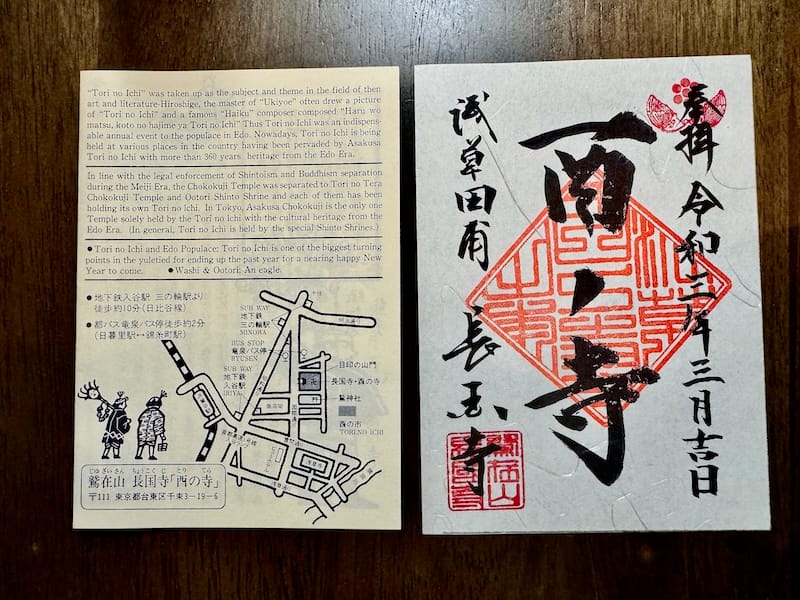 "Tori no Ichi" was taken up as the subject and theme in the field of then
art and literature-Hiroshige, the master of "Ukiyoe" often drew a picture
of "Tori no Ichi" and a famous "Haiku" composer composed "Haru wo
matsu, koto no hajime ya Tori no Ichi" Thus Tori no Ichi was an indispens-
able annual event to the populace in Edo. Nowadays, Tori no Ichi is being
held at various places in the country having been pervaded by Asakusa
Tori no Ichi with more than 360 years heritage from the Edo Era.
In line with the legal enforcement of Shintoism and Buddhism separation
during the Meiji Era, the Chokokuji Temple was separated to Tori no Tera
Chokokuji Temple and Ootori Shinto Shrine and each of them has been
holding its own Tori no Ichi. In Tokyo, Asakusa Chokokuji is the only one
Temple solely held by the Tori no Ichi with the cultural heritage from the
Edo Era. (In general, Tori no Ichi is held by the special Shinto Shrines.)
● Tori no Ichi and Edo Populace: Tori no Ichi is one of the biggest turning
points in the yuletied for ending up the past year for a nearing happy New
Year to come. ● Washi & Ootori; An eagle.
● 地下鉄入谷駅 三の輪駅より
徒歩約10分(日比谷線)
● 都バス竜泉バス停徒歩約2分
(日暮里駅↔錦糸町駅)
SUB WAY
地下鉄
三の輪駅
MINOWA
BUS STOP
竜泉バス停
RYUSEN
SUB WAY
地下鉄
入谷駅
IRIYA
目印の山門
長国寺・酉の寺
鷲神社
酉の市
TORI NO ICHI
じゅざいさん ちょうこくじ とり てら
鷲在山 長国寺「酉の寺」
〒111 東京都台東区千束3-19-6
奉拝 令和三年三月吉日
酉ノ寺
浅草田甫 長国寺